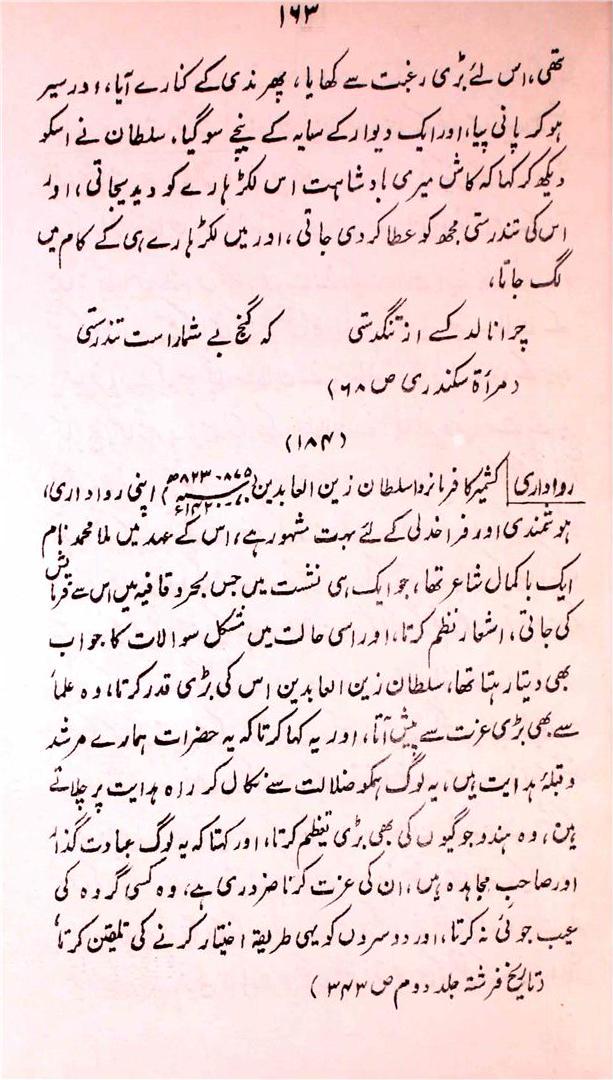 ۱۶۳
تھی، اس لئے بڑی رغبت سے کھایا، پھر ندی کے کنارے آیا، اور سیر
ہو کر پانی پیا، اور ایک دیوار کے سایہ کے نیچے سو گیا۔ سلطان نے اسکو
دیکھ کر کہا کہ کاش میری بادشاہت اس لکڑہارے کو دیدیجاتی، اور
اس کی تندرستی مجھ کو عطا کر دی جاتی، اور میں لکڑہارے ہی کے کام میں
لگ جاتا،
چرا نالد کسے از تنگدستی کہ گنج بے شمار است تندرستی
(مرأة سکندری ص ۶۸)
(۱۸۴)
رواداری کشمیر کا فرمانروا سلطان زین العابدین (۸۷۵-۸۲۳ھ) اپنی رواداری،
ہوشمندی اور فراخدلی کے لئے بہت شہور ہے، اس کے عہد میں ملا محمد نام
ایک با کمال شاعر تھا، جو ایک ہی نشست میں جس بحر و قافیہ میں اس سے فرمایش
کی جاتی، اشعار نظم کرتا، اور اسی حالت میں مشکل سوالات کا جواب
بھی دیتا رہتا تھا، سلطان زین العابدین اس کی بڑی قدر کرتا، وہ علماء
سے بھی بڑی عزت سے پیش آتا، اور یہ کہا کرتا کہ یہ حضرات ہمارے مرشد
و قبلۂ ہدایت ہیں، یہ لوگ ہمکو ضلالت سے نکال کر راہ ہدایت پر چلاتے
ہین، وہ ہندو جوگیوں کی بھی بڑی تعظیم کرتا، اور کہتا کہ یہ لوگ عبادت گذار
اور صاحب مجاہدہ ہیں، ان کی عزت کرنا ضروری ہے، وہ کسی گروہ کی
عیب جوئی نہ کرتا، اور دوسروں کو یہی طریقہ اختیار کرنے کی تلقین کرتا،
(تاریخ فرشتہ جلد دوم ص ۳۴۳)